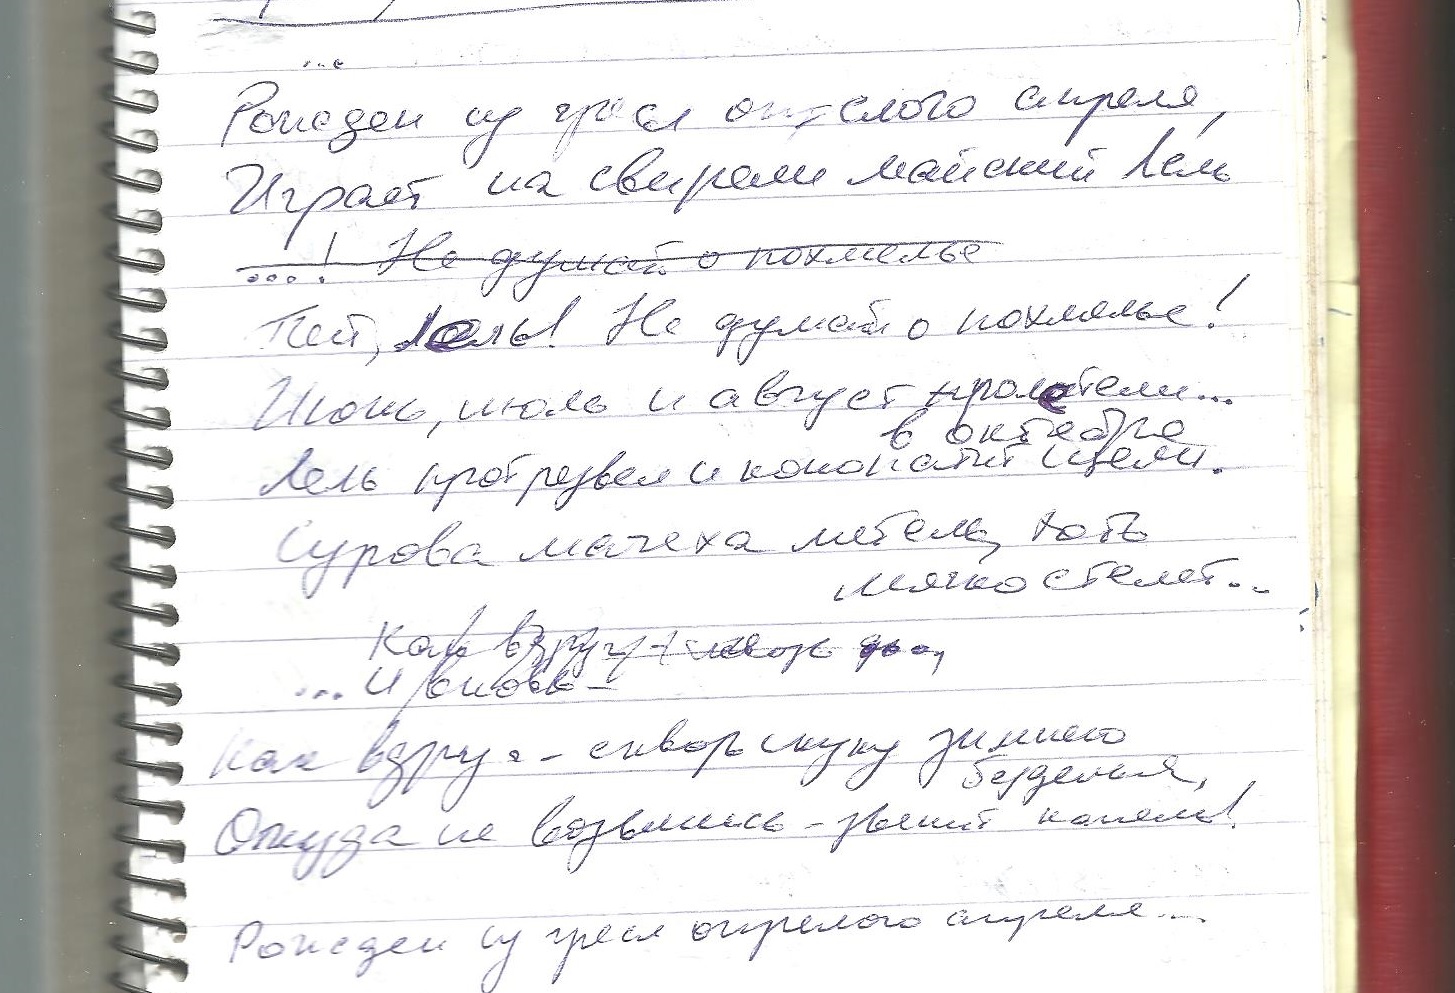 ...
Рожден из чресл опрелого апреля,
Играет на свирели майский Лель
...! Не думай о похмелье
Пей, Лель! Не думай о похмелье!
Июнь, июль и август пролетели...
в октябре
Лель протрезвел и конопатит щели.
Сурова мачеха метель, хоть
мягко стелет...
Как вдруг, сквозь
... И вновь –
Как вдруг – сквозь скуку зимнего
безделья,
Откуда не возьмись – звенит капель!
Рожден из чресл опрелого апреля...